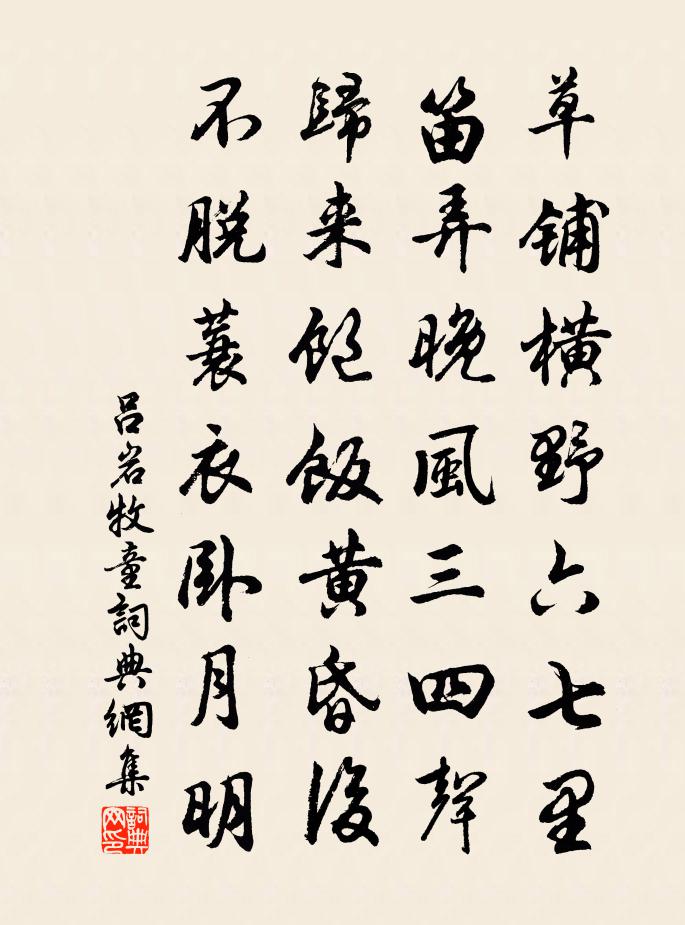 草鋪橫野六七里
笛弄晚風三四聲
歸来飽飯黃昏後
不脫蓑衣卧月明
吕岩牧童詞典網集
詞典網印